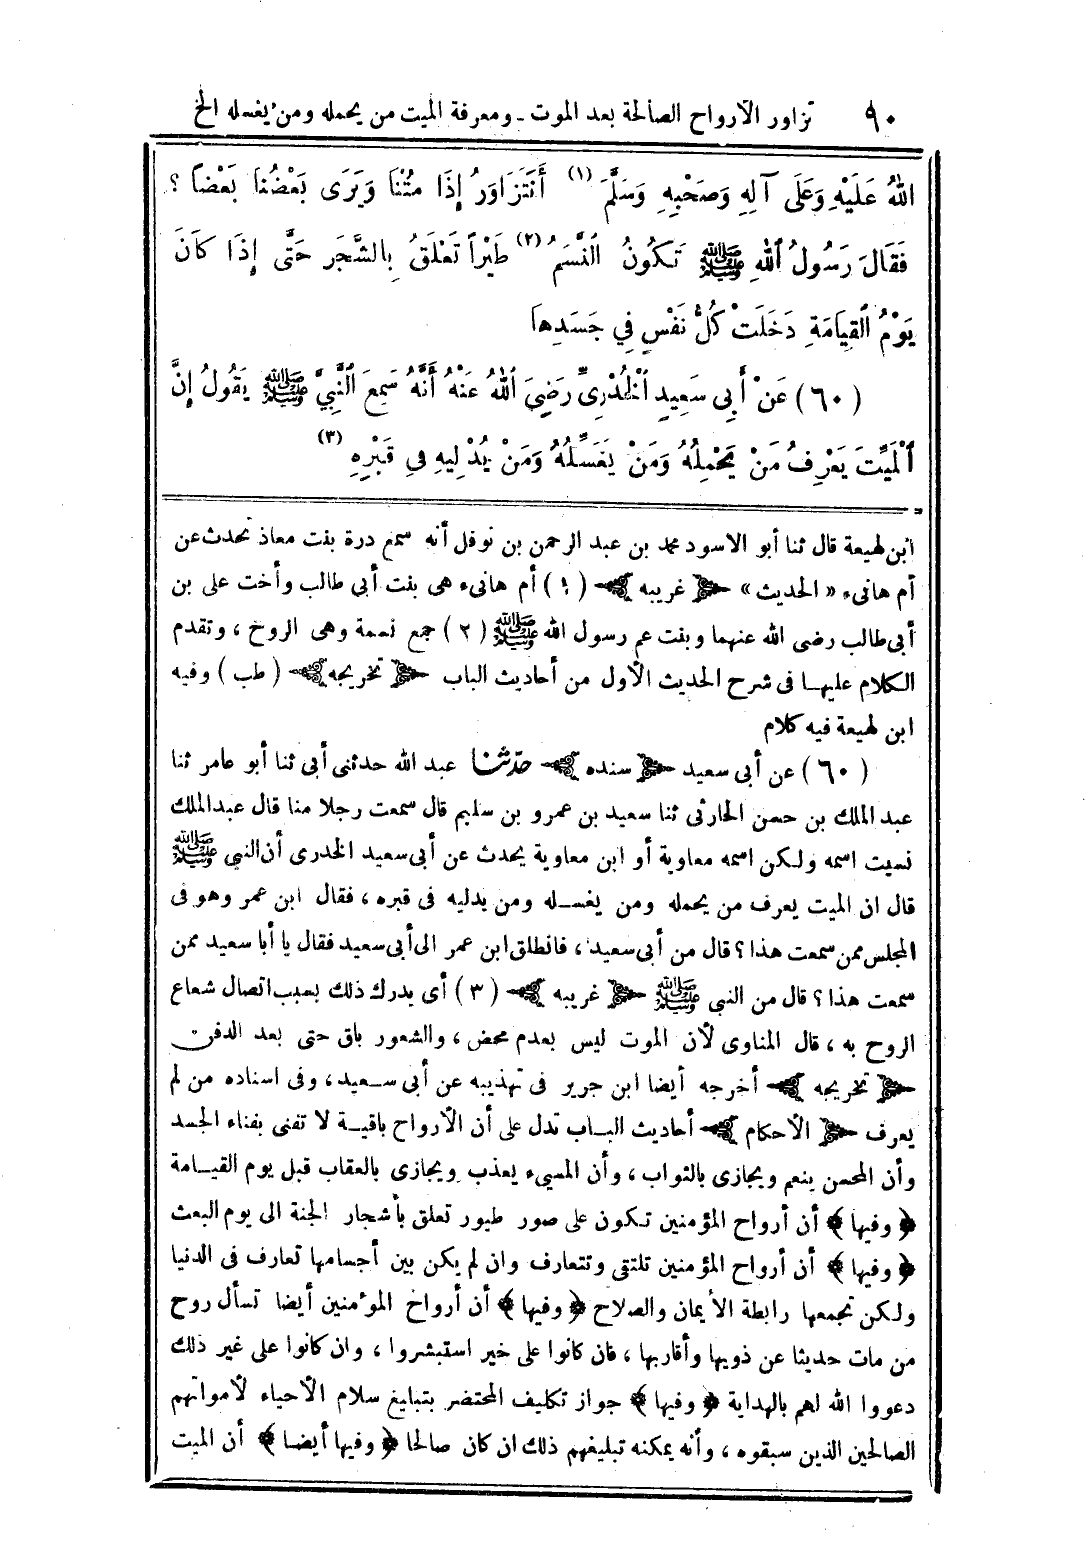 ٩٠ تزاور الأرواح الصالحة بعد الموت - ومعرفة الميت من يحمله ومن يغسله الخ
اللهُ عَلَيْهِ وَعَلَى آلِهِ وَصَحْبِهِ وَسَلَّمَ (١) أَنَتَزَاوَرُ إِذَا مُتْنَا وَيَرَى بَعْضُنَا بَعْضًا ؟
فَقَالَ رَسُولُ اللهِ ﷺ تَكُونُ النَّسَمُ (٢) طَيْرًا تَعْلَقُ بِالشَّجَرِ حَتَّى إِذَا كَانَ
يَوْمُ الْقِيَامَةِ دَخَلَتْ كُلُّ نَفْسٍ فِي جَسَدِهَا
(٦٠) عَنْ أَبِي سَعِيدٍ الْخُدْرِيِّ رَضِيَ اللهُ عَنْهُ أَنَّهُ سَمِعَ النَّبِيَّ ﷺ يَقُولُ إِنَّ
الْمَيِّتَ يَعْرِفُ مَنْ يَحْمِلُهُ وَمَنْ يُغَسِّلُهُ وَمَنْ يُدْلِيهِ فِي قَبْرِهِ (٣)
ابن لهيعة قال ثنا أبو الاسود محمد بن عبد الرحمن بن نوفل أنه سمع درة بنت معاذ تحدث عن
أم هانىء « الحديث » ﴿ غريبه ﴾ (١) أم هانىء هى بنت أبى طالب وأخت على بن
أبى طالب رضى الله عنهما وبنت عم رسول الله ﷺ (٢) جمع نسمة وهى الروح ، وتقدم
الكلام عليها فى شرح الحديث الأول من أحاديث الباب ﴿ تخريجه ﴾ (طب) وفيه
ابن لهيعة فيه كلام
(٦٠) عن أبى سعيد ﴿ سنده ﴾ حدثنا عبد الله حدثنى أبى ثنا أبو عامر ثنا
عبد الملك بن حسن الحارثى ثنا سعيد بن عمرو بن سليم قال سمعت رجلا منا قال عبد الملك
نسيت اسمه ولكن اسمه معاوية أو ابن معاوية يحدث عن أبى سعيد الخدرى أن النبي ﷺ
قال ان الميت يعرف من يحمله ومن يغسله ومن يدليه فى قبره ، فقال ابن عمر وهو فى
المجلس ممن سمعت هذا ؟ قال من أبى سعيد ، فانطلق ابن عمر الى أبى سعيد فقال يا أبا سعيد ممن
سمعت هذا ؟ قال من النبى ﷺ ﴿ غريبه ﴾ (٣) أى يدرك ذلك بسبب اتصال شعاع
الروح به ، قال المناوى لأن الموت ليس بعدم محض ، والشعور باق حتى بعد الدفن
﴿ تخريجه ﴾ أخرجه أيضا ابن جرير فى تهذيبه عن أبى سعيد ، وفى اسناده من لم
يعرف ﴿ الأحكام ﴾ أحاديث الباب تدل على أن الأرواح باقية لا تفنى بفناء الجسد
وأن المحسن ينعم ويجازى بالثواب ، وأن المسىء يعذب ويجازى بالعقاب قبل يوم القيامة
﴿ وفيها ﴾ أن أرواح المؤمنين تكون على صور طيور تعلق بأشجار الجنة الى يوم البعث
﴿ وفيها ﴾ أن أرواح المؤمنين تلتقى وتتعارف وان لم يكن بين أجسامها تعارف فى الدنيا
ولكن تجمعها رابطة الأيمان والصلاح ﴿ وفيها ﴾ أن أرواح المؤمنين أيضا تسأل روح
من مات حديثا عن ذويها وأقاربها ، فان كانوا على خير استبشروا ، وان كانوا على غير ذلك
دعووا الله لهم بالهداية ﴿ وفيها ﴾ جواز تكليف المحتضر بتبليغ سلام الأحياء لأمواتهم
الصالحين الذين سبقوه ، وأنه يمكنه تبليغهم ذلك ان كان صالحا ﴿ وفيها أيضا ﴾ أن الميت